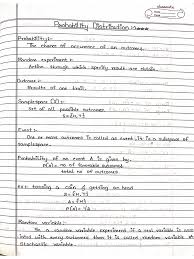 Probability Distribution :-
Probability :-
The chance of occurrence of an outcome.
Random experiment :-
Action through which specify result are obtain.
Outcome :-
Results of one trial.
Sample space (S) :-
Set of all possible outcomes.
S = {H,T}
Event :-
One or more outcomes is called as event. It is a subspace of
sample space.
Probability of an event A is given by.
P(A) = no of favourable outcomes
total no of outcomes
EX:- tossing a coin & getting an head
S = {H,T}
A = {H}
P(A) = 1/2
Random variable :-
In a random variable experiment if a real variable is asso
iated with every outcomes then it is called random variable or
stochastic variable.